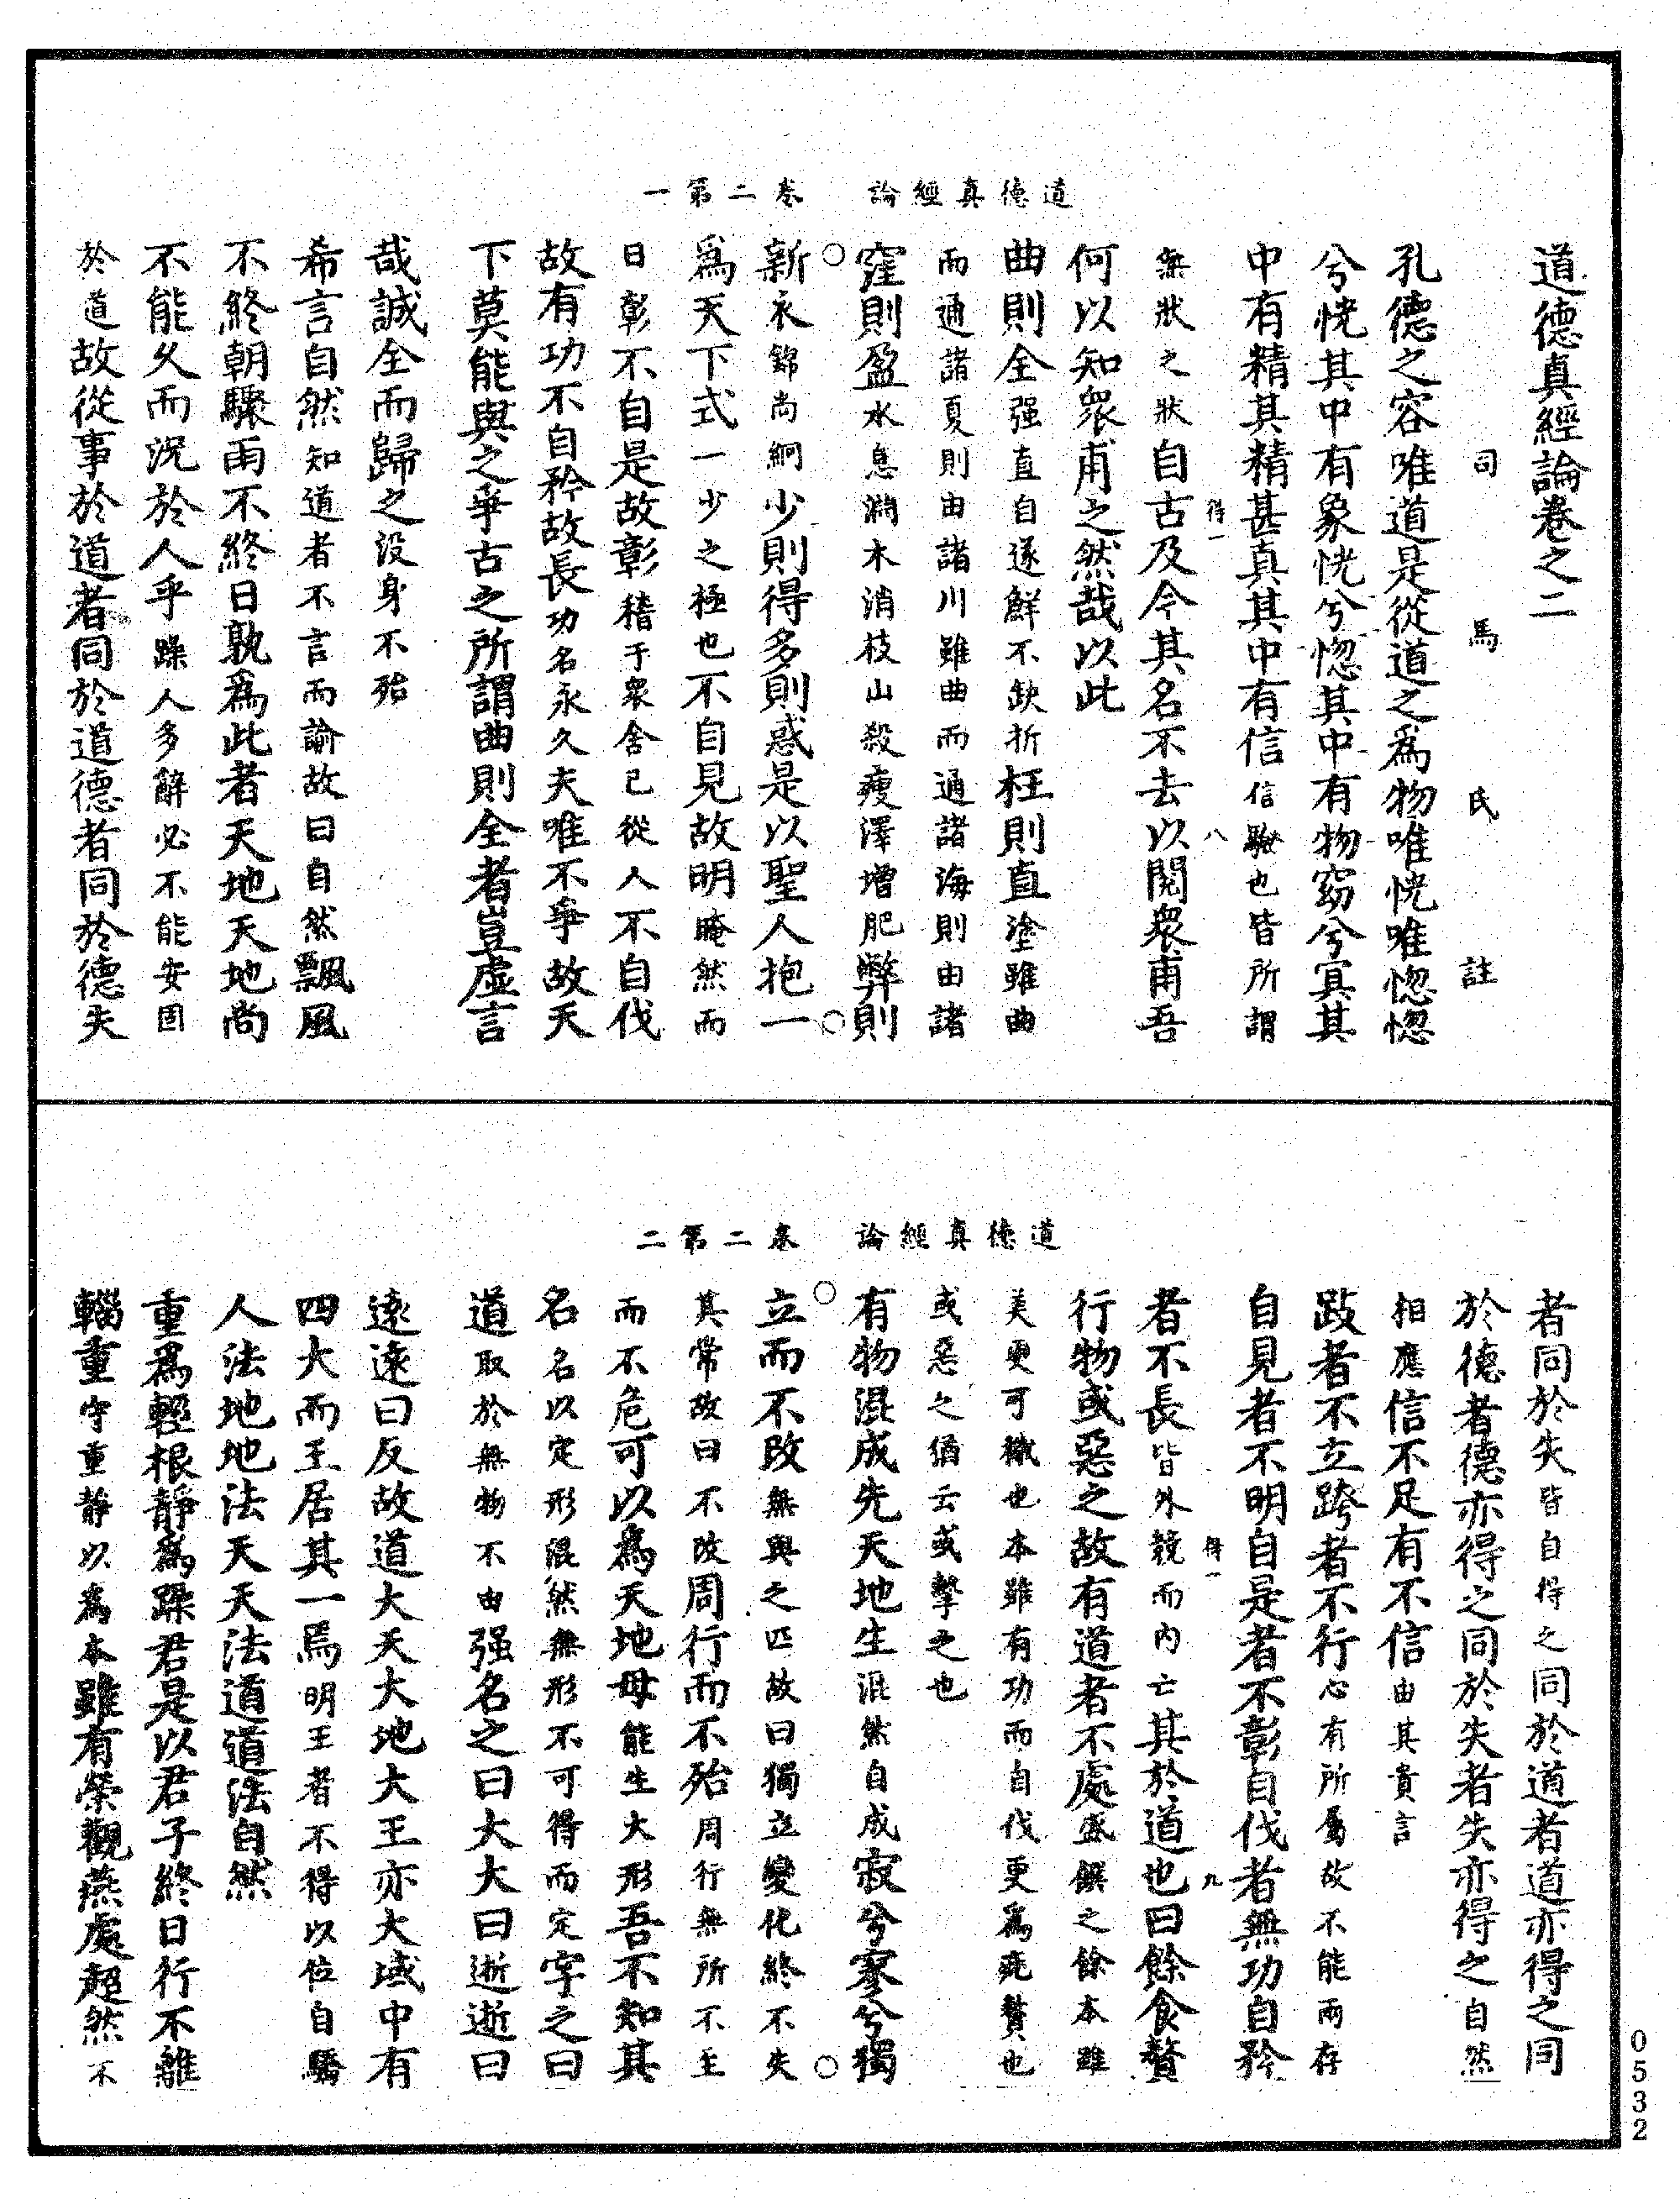 道德真經論　卷二第一
道德真經論卷之二
司馬氏註
孔德之容唯道是從道之爲物唯恍唯惚惚
兮恍其中有象恍兮惚其中有物窈兮冥其
中有精其精甚真其中有信信驗也皆所謂
得一　八
無狀之狀自古及今其名不去以閱衆甫吾
何以知衆甫之然哉以此
曲則全强直自遂鮮不缺折枉則直塗雖曲
而通諸夏則由諸川雖曲而通諸海則由諸
窪則盈水息淵木消枝山殺瘦澤增肥弊則
新衣錦尚絅少則得多則惑是以聖人抱一
爲天下式一少之極也不自見故明晻然而
日彰不自是故彰稽于衆舍己從人不自伐
故有功不自矜故長功名永久夫唯不爭故天
下莫能與之爭古之所謂曲則全者豈虛言
哉誠全而歸之沒身不殆
希言自然知道者不言而諭故曰自然飄風
不終朝驟雨不終日孰爲此者天地天地尚
不能久而況於人乎躁人多辭必不能安固
於道故從事於道者同於道德者同於德失
道德真經論　卷二第二
者同於失皆自得之同於道者道亦得之同
於德者德亦得之同於失者失亦得之自然
相應信不足有不信由其貴言
跂者不立跨者不行心有所屬故不能兩存
自見者不明自是者不彰自伐者無功自矜
得一　九
者不長皆外競而內亡其於道也曰餘食贅
行物或惡之故有道者不處盛饌之餘本雖
美更可薉也本雖有功而自伐更爲疣贅也
或惡之猶云或擊之也
有物混成先天地生混然自成寂兮寥兮獨
立而不改無與之匹故曰獨立變化終不失
其常故曰不改周行而不殆周行無所不至
而不危可以爲天地母能生大形吾不知其
名名以定形混然無形不可得而定字之曰
道取於無物不由强名之曰大大曰逝逝曰
遠遠曰反故道大天大地大王亦大域中有
四大而王居其一焉明王者不得以位自驕
人法地地法天天法道道法自然
重爲輕根靜爲躁君是以君子終日行不離
輜重守重靜以爲本雖有榮觀燕處超然不
0532